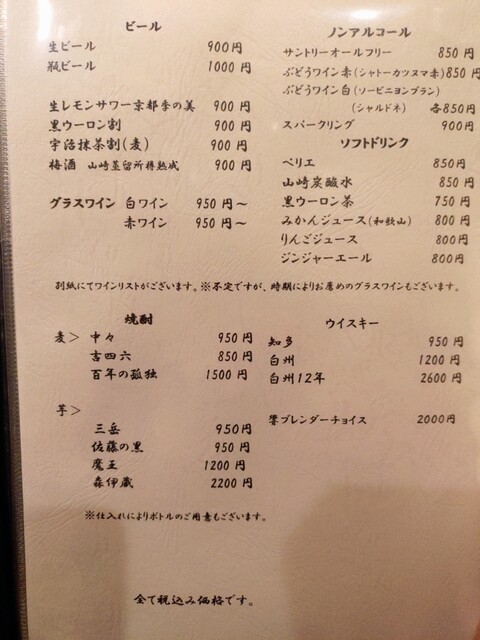 ビール
生ビール 900円
瓶ビール 1000円
生レモンサワー京都季の美 900円
黒ウーロン割 900円
宇治抹茶割(麦) 900円
梅酒 山崎蒸留所樽熟成 900円
グラスワイン 白ワイン 950円~
赤ワイン 950円~
ノンアルコール
サントリーオールフリー 850円
ぶどうワイン赤(シャトーカツヌマ赤)850円
ぶどうワイン白(ソービニヨンブラン)
(シャルドネ) 各850円
スパークリング 900円
ソフトドリンク
ペリエ 850円
山崎炭酸水 850円
黒ウーロン茶 750円
みかんジュース(和歌山) 800円
りんごジュース 800円
ジンジャーエール 800円
別紙にてワインリストがございます。※不定ですが、時期によりお薦めのグラスワインもございます。
焼酎
麦> 中々 950円
吉四六 850円
百年の孤独 1500円
芋>
三岳 950円
佐藤の黒 950円
魔王 1200円
森伊蔵 2200円
※仕入れによりボトルのご用意もございます。
ウイスキー
知多 950円
白州 1200円
白州12年 2600円
響ブレンダーチョイス 2000円
全て税込み価格です。